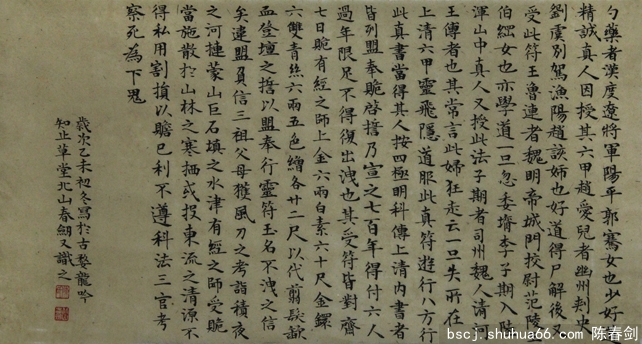 勺藥者漢度遼將軍陽平郭騫女也少好
精誠真人因授其六甲趙愛兒者幽州刺史
劉虞別駕漁陽趙該姊也好道得尸解後又
受此符王魯連者魏明帝城門校尉范陵王
伯綱女也亦學道一旦忽委壻李子期入陸
渾山中真人又授此法子期者司州魏人清河
王傳者也其常言此婦狂走云一旦失所在
上清六甲靈飛隱道服此真符遊行八方行
此真書當得其人按四極明科傳上清內書者
皆列盟奉跪啓誓乃宣之七百年得付六人
過年限足不得復出洩也其受符皆對齋
七日賂有經之師上金六兩白素六十尺金鐶
六雙青絲六兩五色繒各廿二尺以代翦髮歃
血登壇之誓以盟奉行靈符玉名不洩之信
矣違盟負信三祖父母獲風刀之考詣積夜
之河揵蒙山巨石填之水津有經之師受賂
當施散於山林之寒栖或投東流之清源不
得私用割損以贍己利不遵科法三官考
察死為下鬼
歲次乙未初冬寫於古婺龍吟
知止草堂北山春劍又識之
bscj.shuhua66.com 陈春剑